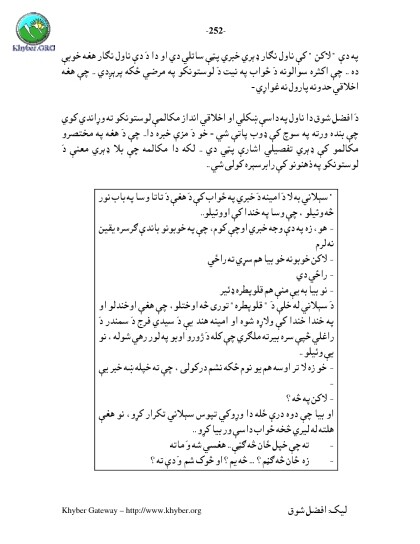 -252-
Khyber.ORG
په دې "لاکن" کې ناول نگار ډېرې خبرې پټې ساتلي دي او دا دَ دې ناول نگار هغه خوبي
ده .. چې اکثره سوالونه دَ ځواب په نيت دَ لوستونکو په مرضي ځکه پرېږدي .. چې هغه
اخلاقي حدونه پارول نه غواړي-
دَ افضل شوق دا ناول په داسې ښکلي او اخلاقي انداز مکالمې لوستونکو ته وړاندې کوي
چې بنده ورته په سوچ کې ډوب پاتې شي - خو دَ مزې خبره دا.. چې دَ هغه په مختصرو
مکالمو کې ډېرې تفصيلي اشارې پټې دي .. لکه دا مکالمه چې بلا ډېرې معنې دَ
لوستونکو په ذهنونو کې رابرسېره کولی شي..
" سېلاني به لا دَ امينه دَ خبرې په ځواب کې دَ هغې دَ تاتا وسا په باب نور
څه وئيلو ، چې وسا په خندا کې اووئيلو..
- هو ، زه په دې وجه خبرې اوچې کوم، چې په خوبونو باندې گرسره يقين
نه لرم
- لاکن خوبونه خو بيا هم سړي ته راځي
- راځي دي
- نو بيا به يې منې هم قلوپطره ډئير
دَ سېلاني له خلې دَ " قلوپطره" توری څه اوختلو ، چې هغې اوخندلو او
په خندا خندا کې ولاړه شوه او امينه هند يې دَ سيدي فرج دَ سمندر دَ
راغلي څپې سره بېرته ملگرې چې کله دَ ژورو اوبو په لور رهي شوله ، نو
يې وئيلو -
- خو زه لا تر اوسه هم يو نوم ځکه نشم درکولی ، چې ته خپله ښه خبر يې
-
- لاکن په څه ؟
او بيا چې دوه درې ځله دا وړوکي تپوس سېلاني تکرار کړو ، نو هغې
هلته له لېرې څخه ځواب داسې وربيا کړو..
- ته چې خپل ځان څه گڼې.. هغسې شه وَ ما ته
- زه ځان څه گڼم ؟ .. څه يم ؟ او څوک شم وَ دې ته ؟
Khyber Gateway – http://www.khyber.org
ليک: افضل شوق